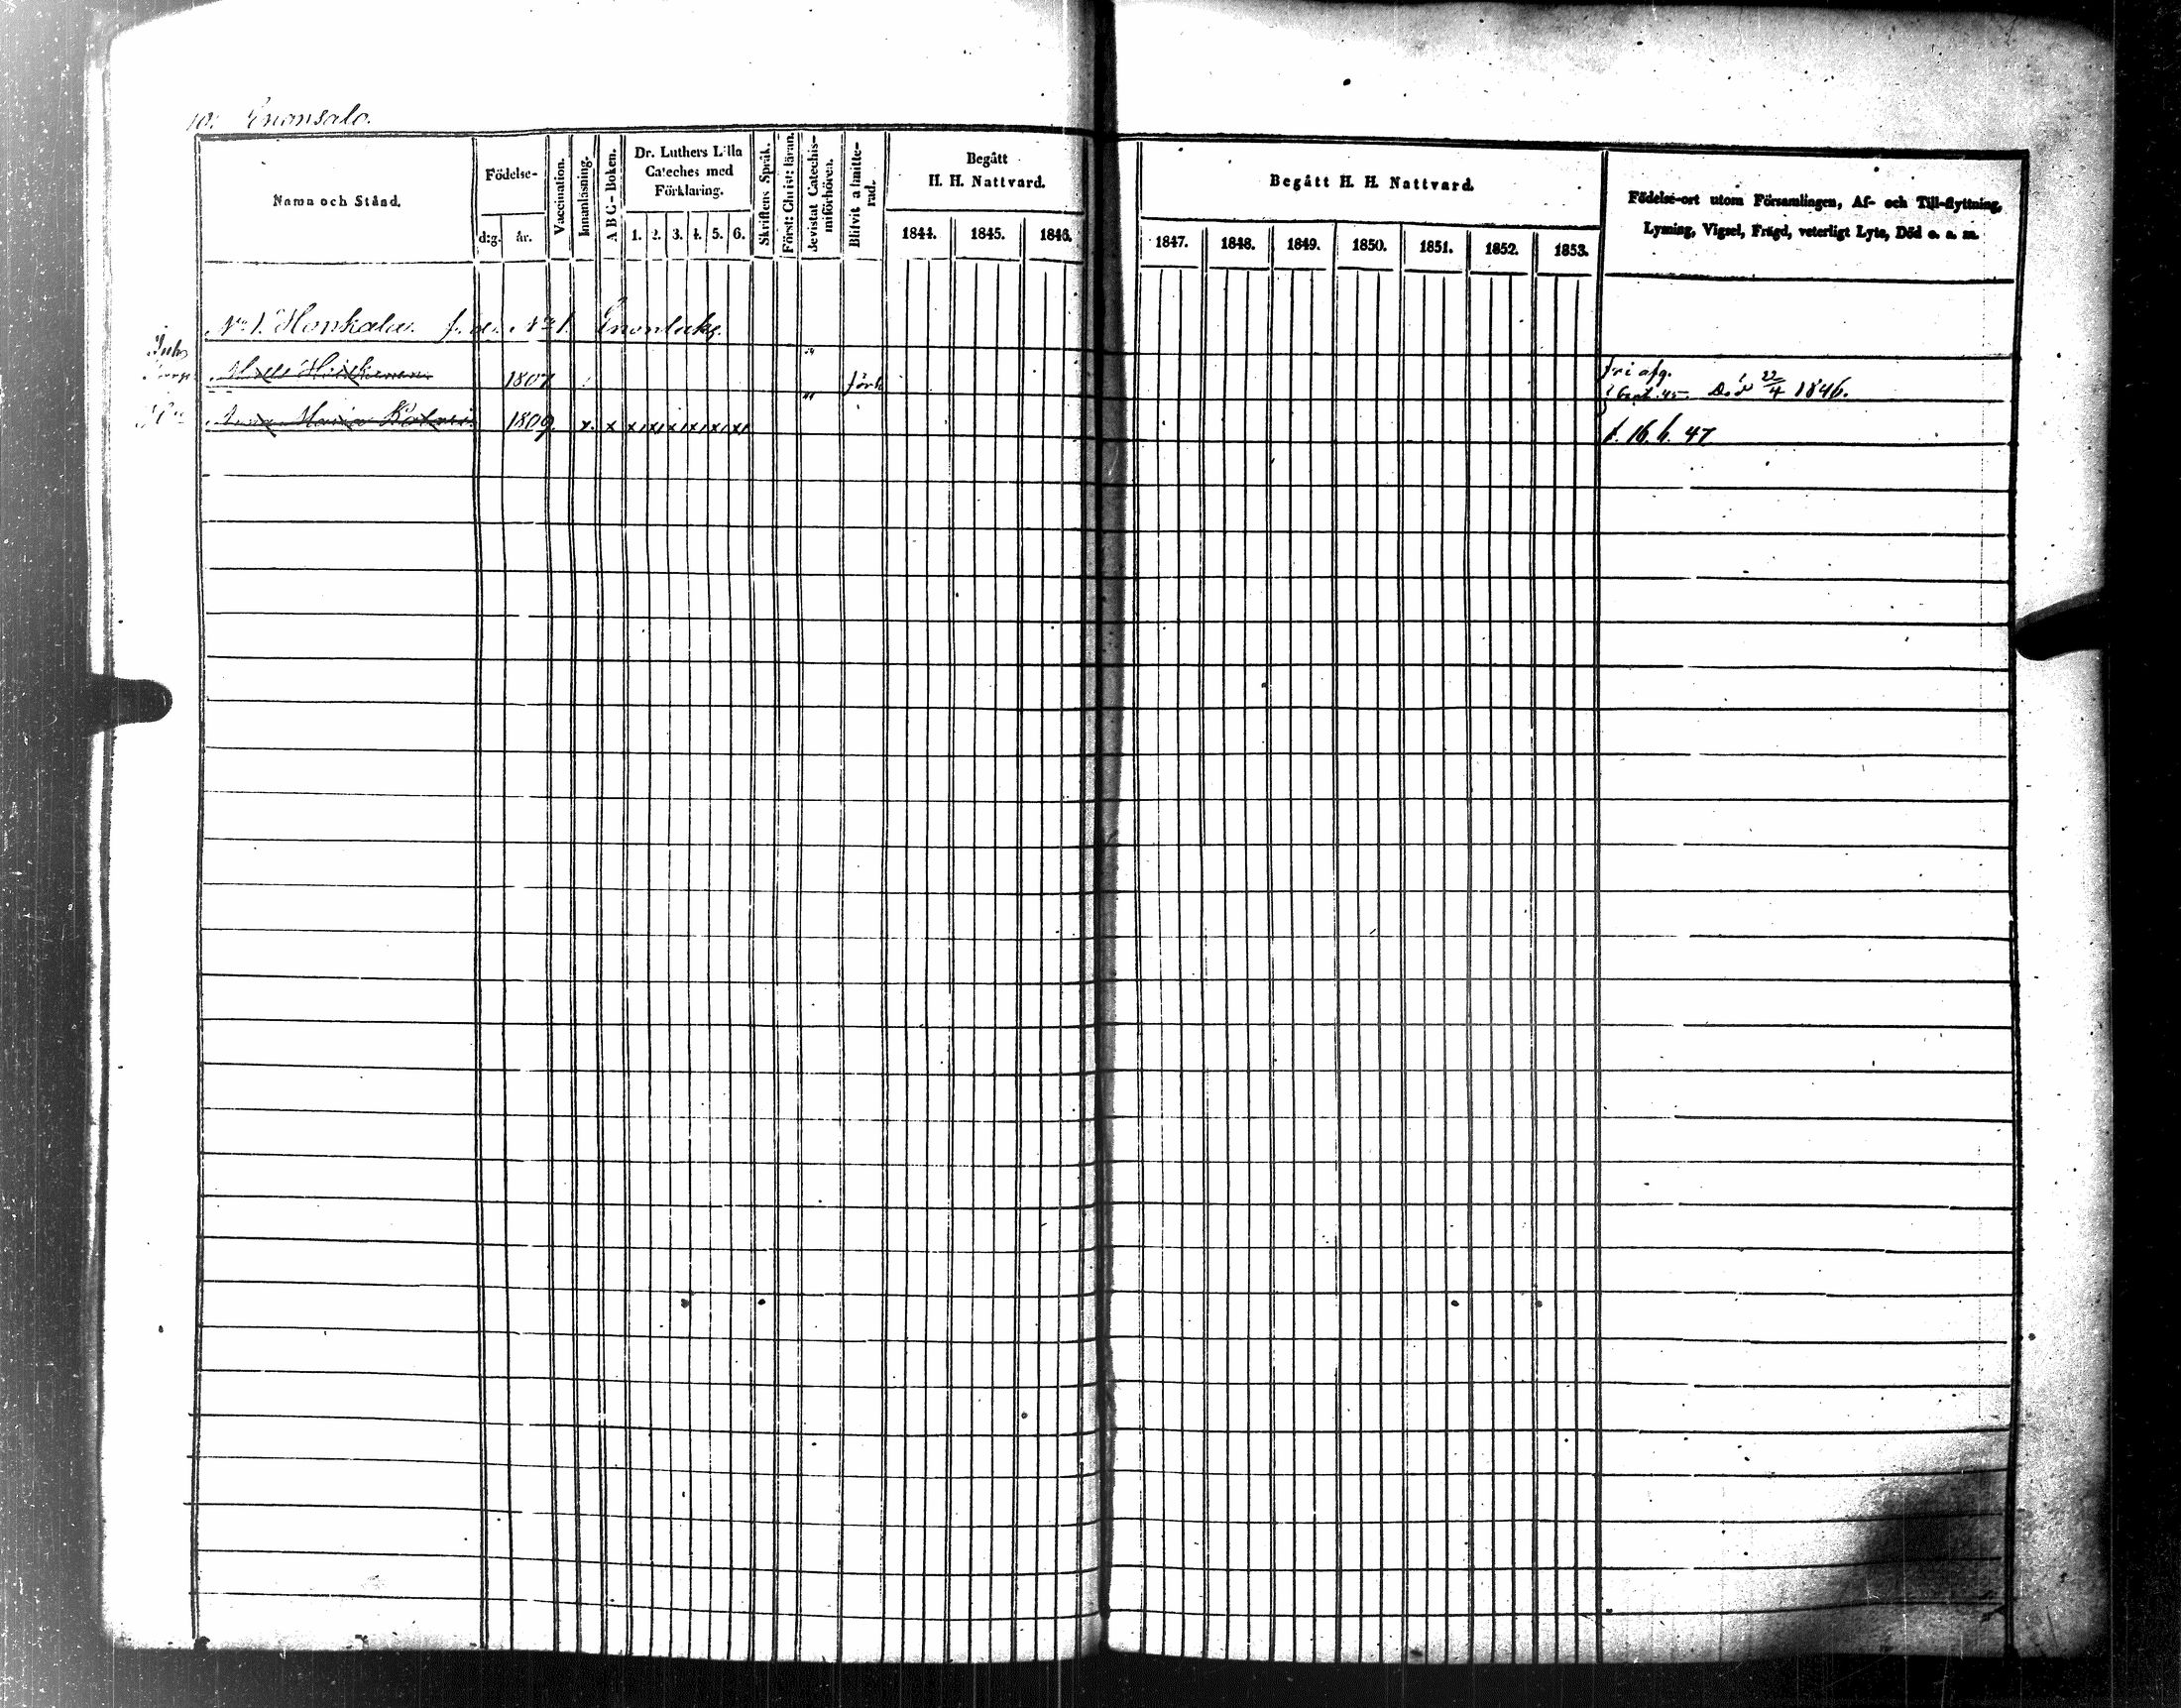 10. Enonsalo.
Namn och Stånd.
Födelse-
d:g. år.
Vaccination.
Innanläsning.
A B C-Boken.
Dr. Luthers Lilla
Cateches med
Förklaring.
1. 2. 3. 4. 5. 6.
Skriftens Språk.
Först: Christ: läran.
Bevistat Catechis-
miförhören.
Blifvit admitte-
rad.
Begått
H. H. Nattvard.
1844. 1845. 1846.
Begått H. H. Nattvard.
1847. 1848. 1849. 1850. 1851. 1852. 1853.
Födelse-ort utom Församlingen, Af- och Till-flyttning,
Lysning, Vigsel, Frägd, veterligt Lyte, Död o. a. m.
No 1. Honkala. No 1. Enonlaks.
1807 förh fri afg.
Sept. 45 Död 22/4 1846.
Anna Maria 1809. x. x x x x x x x
t. 16. 6. 47